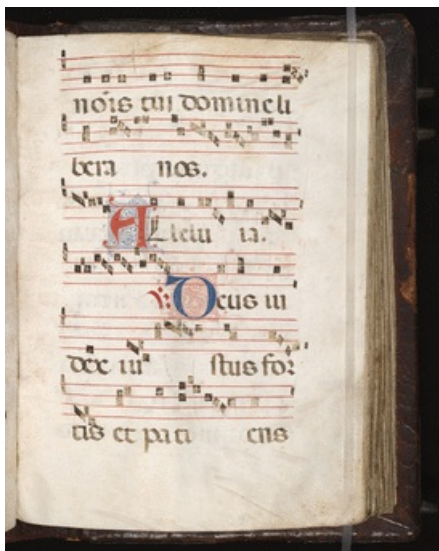 nõis tui domine li
bera nos.
Allelu ia.
Deus iu
dex iu stus for
tis et pati ens